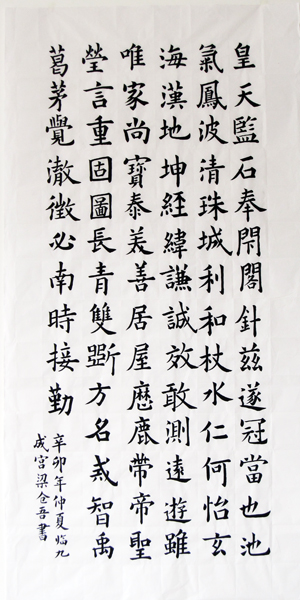 皇天監石奉閇閣針茲遂冠當也池
氣鳳波清珠城利和杖水仁何怡玄
海漢地坤經緯謙誠效敢測遠遊雖
唯家尚寶泰美善居屋歷鹿帶帝聖
瑩言重固圖長青雙斷方名或智禹
葛茅覺澈徵必南時接勤
辛卯年仲夏臨九
成宮梁仓吾書